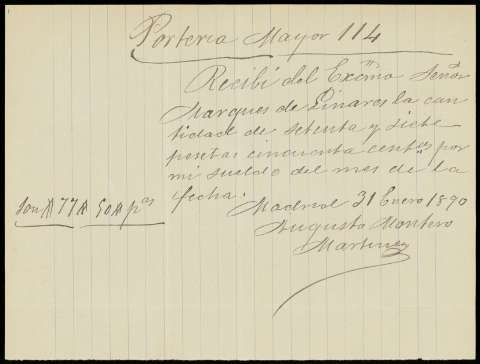 Porteria Mayor 114
Recibi del Excmo Señor
Marques de Linares la can
tidad de setenta y siete
pesetas cincuenta centos por
mi sueldo del mes de la
fecha.
Son # 77 # 50 # pas
Madrid 31 Enero 1890
Augusto Montero
Martinez